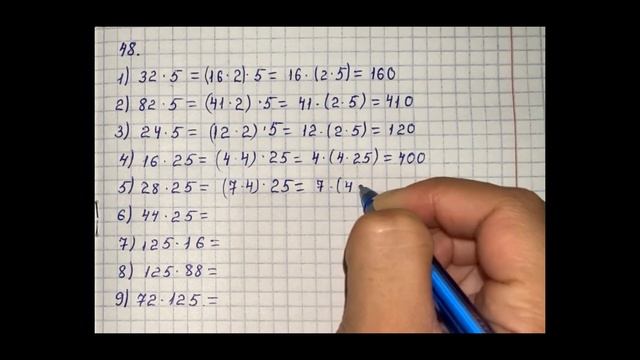 48.
1) 32 · 5 = (16 · 2) · 5 = 16 · (2 · 5) = 160
2) 82 · 5 = (41 · 2) · 5 = 41 · (2 · 5) = 410
3) 24 · 5 = (12 · 2) · 5 = 12 · (2 · 5) = 120
4) 16 · 25 = (4 · 4) · 25 = 4 · (4 · 25) = 400
5) 28 · 25 = (7 · 4) · 25 = 7 · (4 ·
6) 44 · 25 =
7) 125 · 16 =
8) 125 · 88 =
9) 72 · 125 =